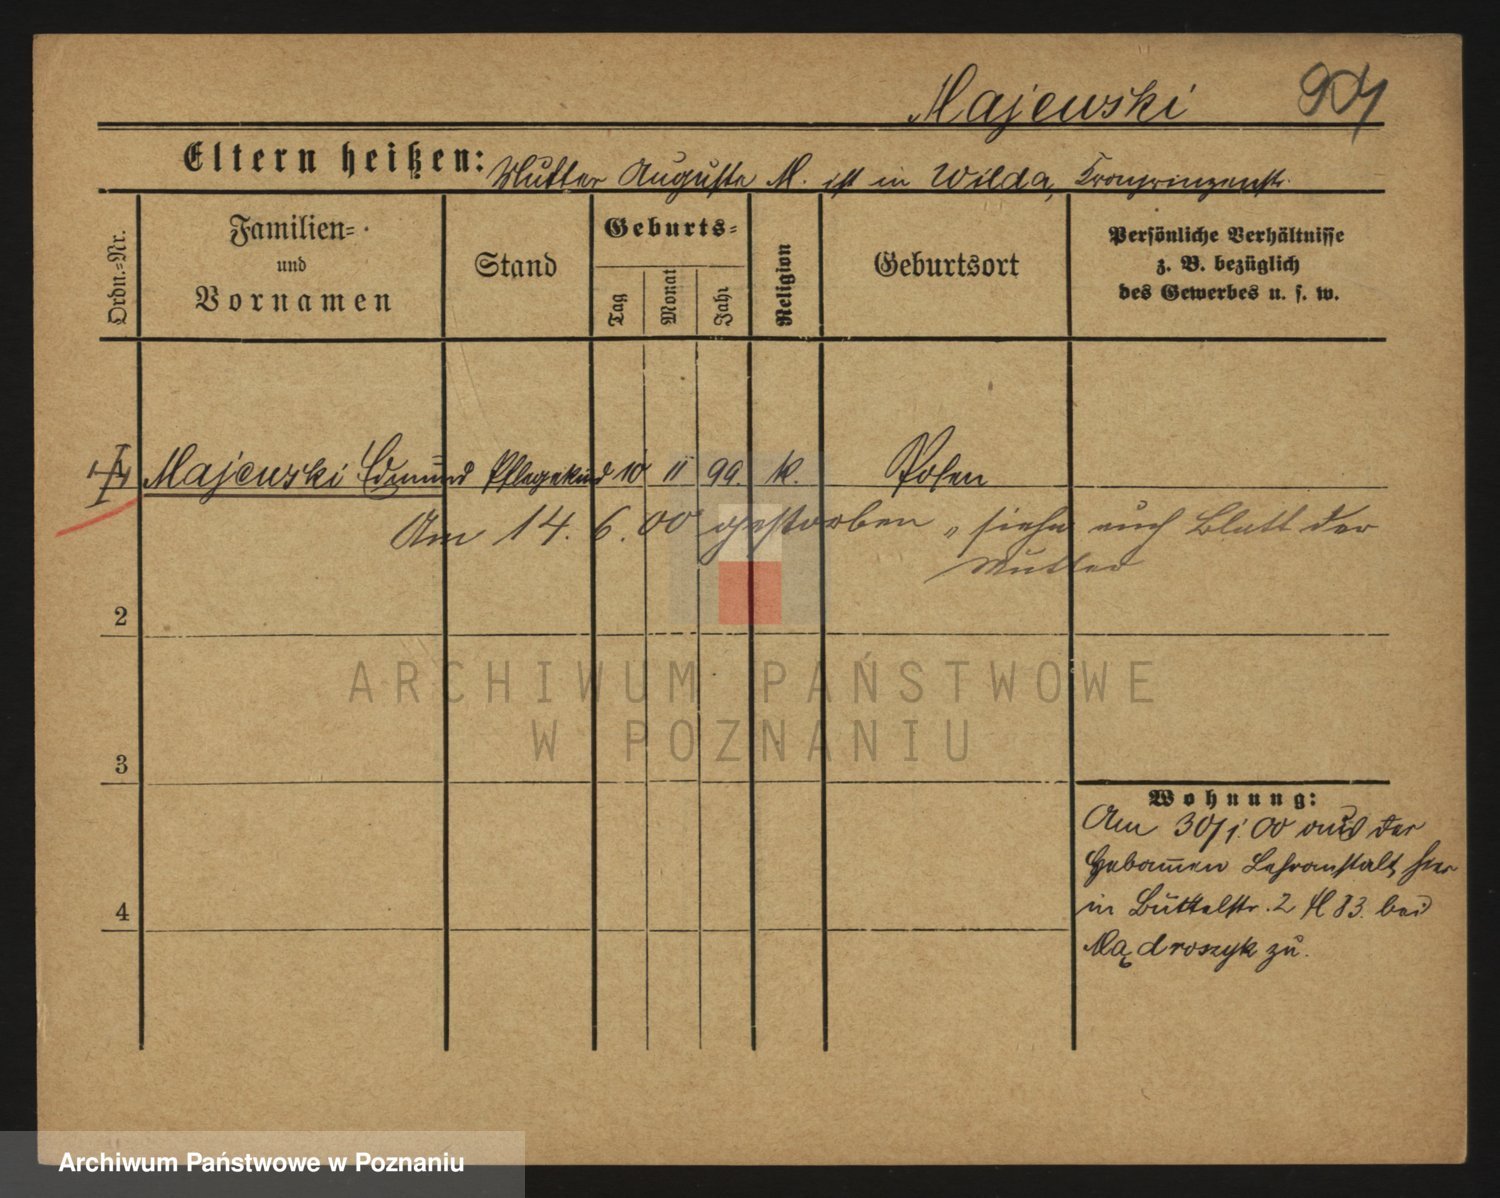 Majewski
Eltern heißen: Mutter Auguste M. ist in Wilda, Kronprinzenstr.
Ordn.=Nr.
Familien=
und
Vornamen
Stand
Geburts=
Tag
Monat
Jahr
Religion
Geburtsort
Persönliche Verhältnisse
z. B. bezüglich
des Gewerbes u. s. w.
Majewski Edmund Pflegekind 10 11 99. k. Posen
Am 14. 6. 00 gestorben, siehe auch Blatt der
Mutter
2
3
4
Wohnung:
Am 30/1. 00 aus der
Hebam̅en Lehranstalt hier
in Büttelstr. 2 H 83. bei
Mądroszyk zu.
ARCHIWUM PAŃSTWOWE
W POZNANIU
Archiwum Państwowe w Poznaniu